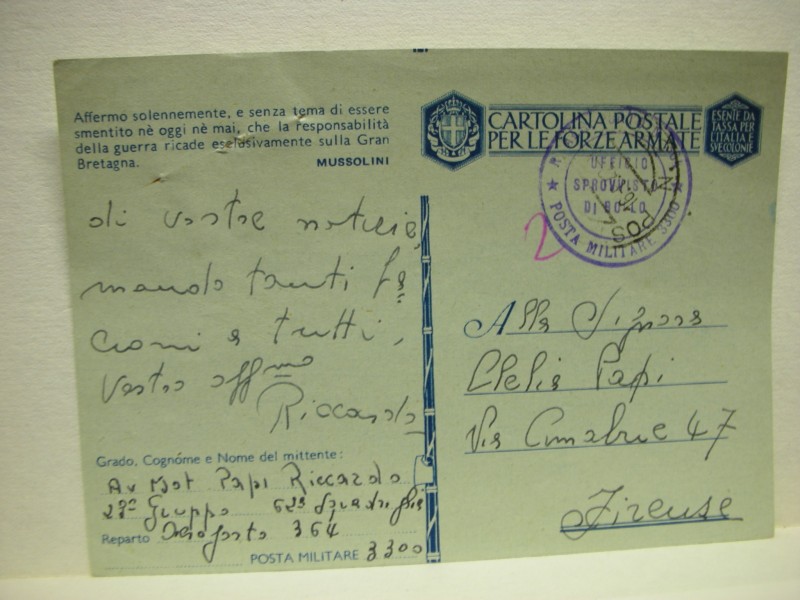 Affermo solennemente, e senza tema di essere
smentito nè oggi nè mai, che la responsabilità
della guerra ricade esclusivamente sulla Gran
Bretagna.
MUSSOLINI
di vostre notizie,
mando tanti ba
cioni a tutti,
Vostro aff.mo
Riccardo
Grado, Cognóme e Nome del mittente:
Av Mot Papi Riccardo
27° Gruppo 52a Squadriglia
Reparto Aeroporto 364
POSTA MILITARE 3300
CARTOLINA POSTALE
PER LE FORZE ARMATE
ESENTE DA
TASSA PER
L'ITALIA E
SVE COLONIE
UFFICIO
SPROVVISTO
DI BOLLO
POSTA MILITARE 3300
POS
2
Alla Signora
Clelia Papi
Via Cimabue 47
Firenze